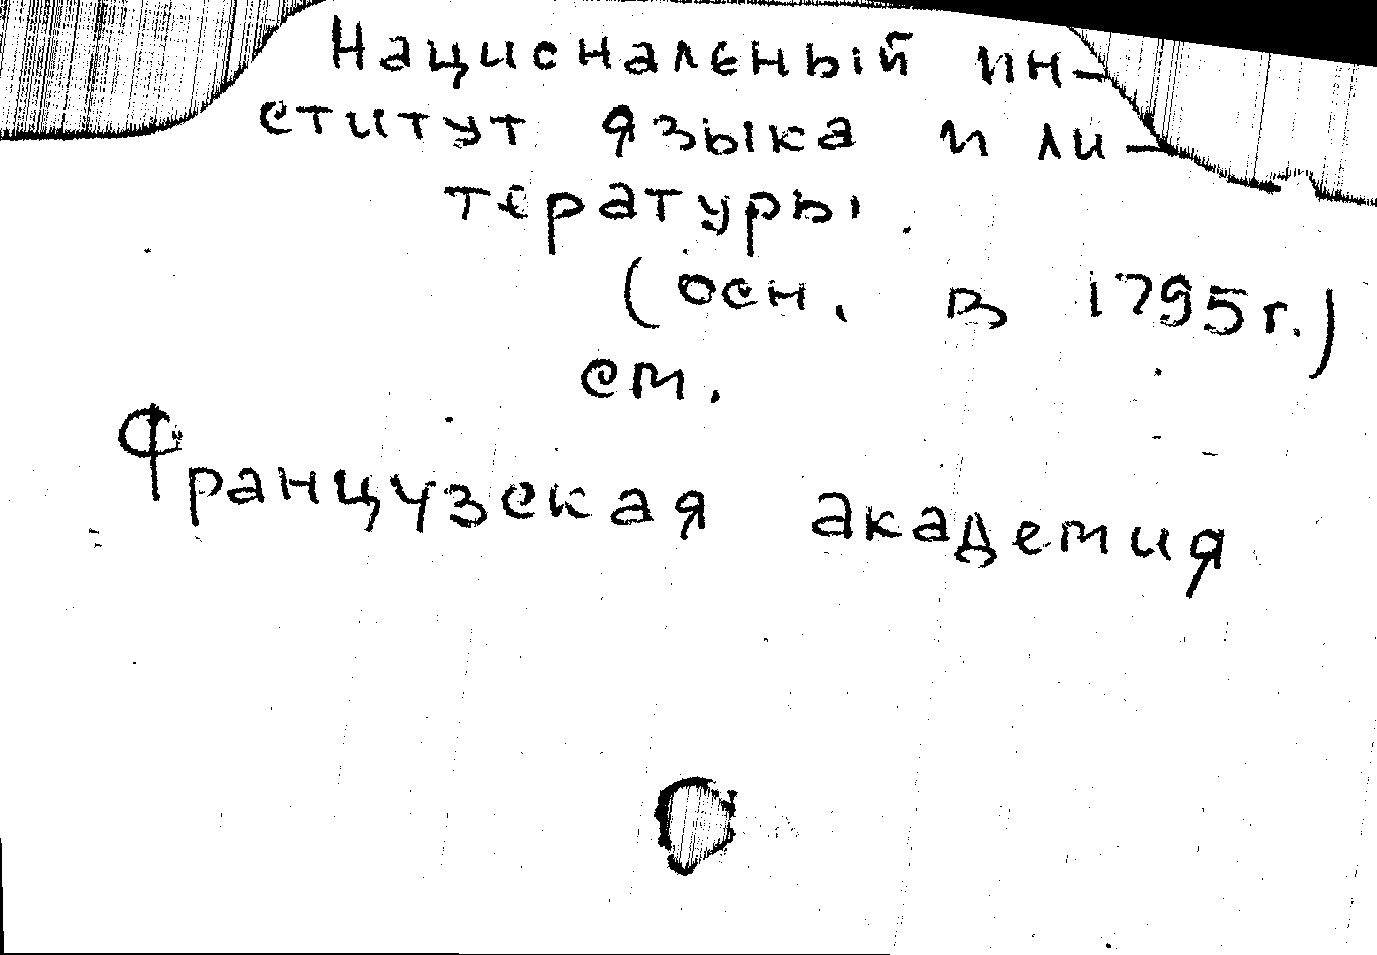 Национальный ин-
ститут языка и ли-
тературы
(осн. в 1795г.)
см.
Французская академия